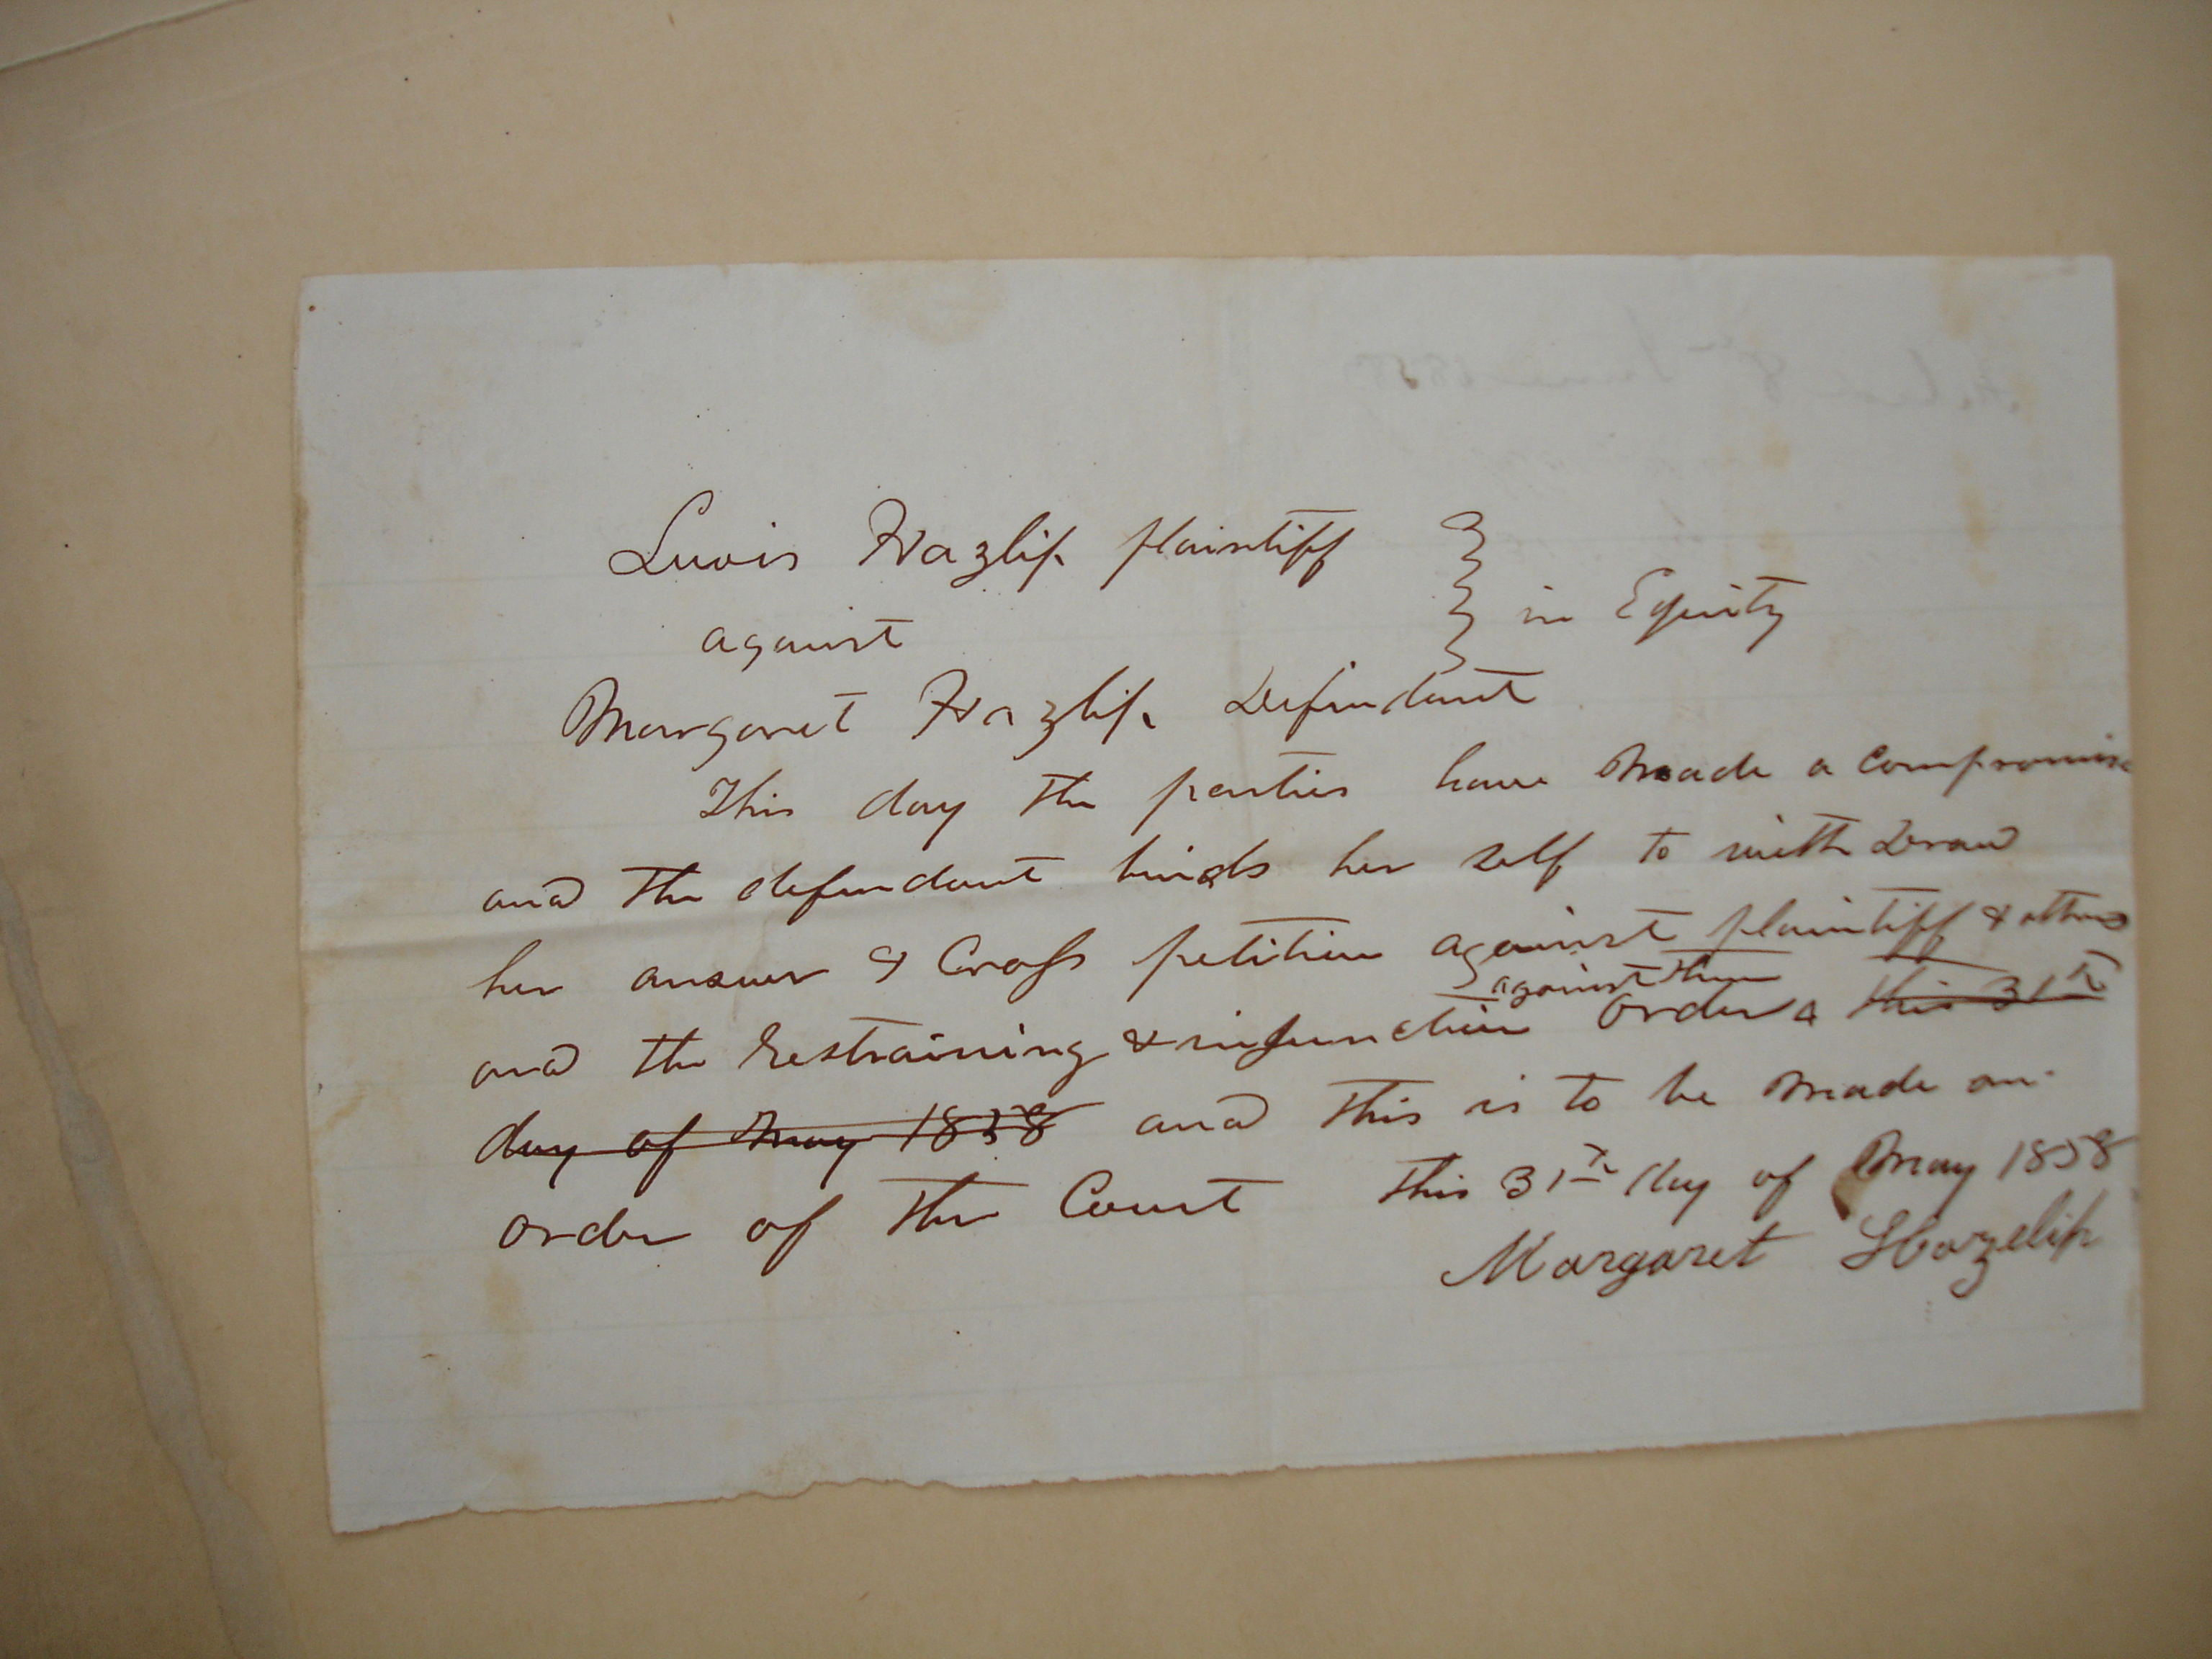 Lewis Hazlip plaintiff
against } in Equity
Margaret Hazlip Defendant
This day the parties have made a compromise
and the defendant binds her self to with Draw
her answer & Cross petition against plaintiff & others
against them
and the restraining & injunction order ^ this 31th
day of May 1858 and this is to be made an
order of the Court this 31th day of May 1858
Margaret Hazelip